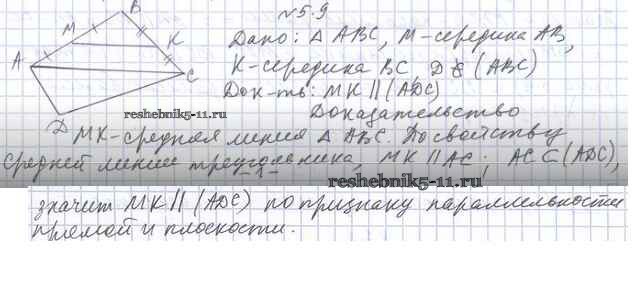 №5.9
B
M
K
A
C
D
Дано: Δ ABC, M-середина AB,
K-середина BC, D∉(ABC)
Док-ть: MK || (ADC)
reshebnik5-11.ru
Доказательство
MK-средняя линия Δ ABC. По свойству
средней линии треугольника, MK || AC; AC⊂(ADC),
reshebnik5-11.ru
значит MK || (ADC) по признаку параллельности
прямой и плоскости.